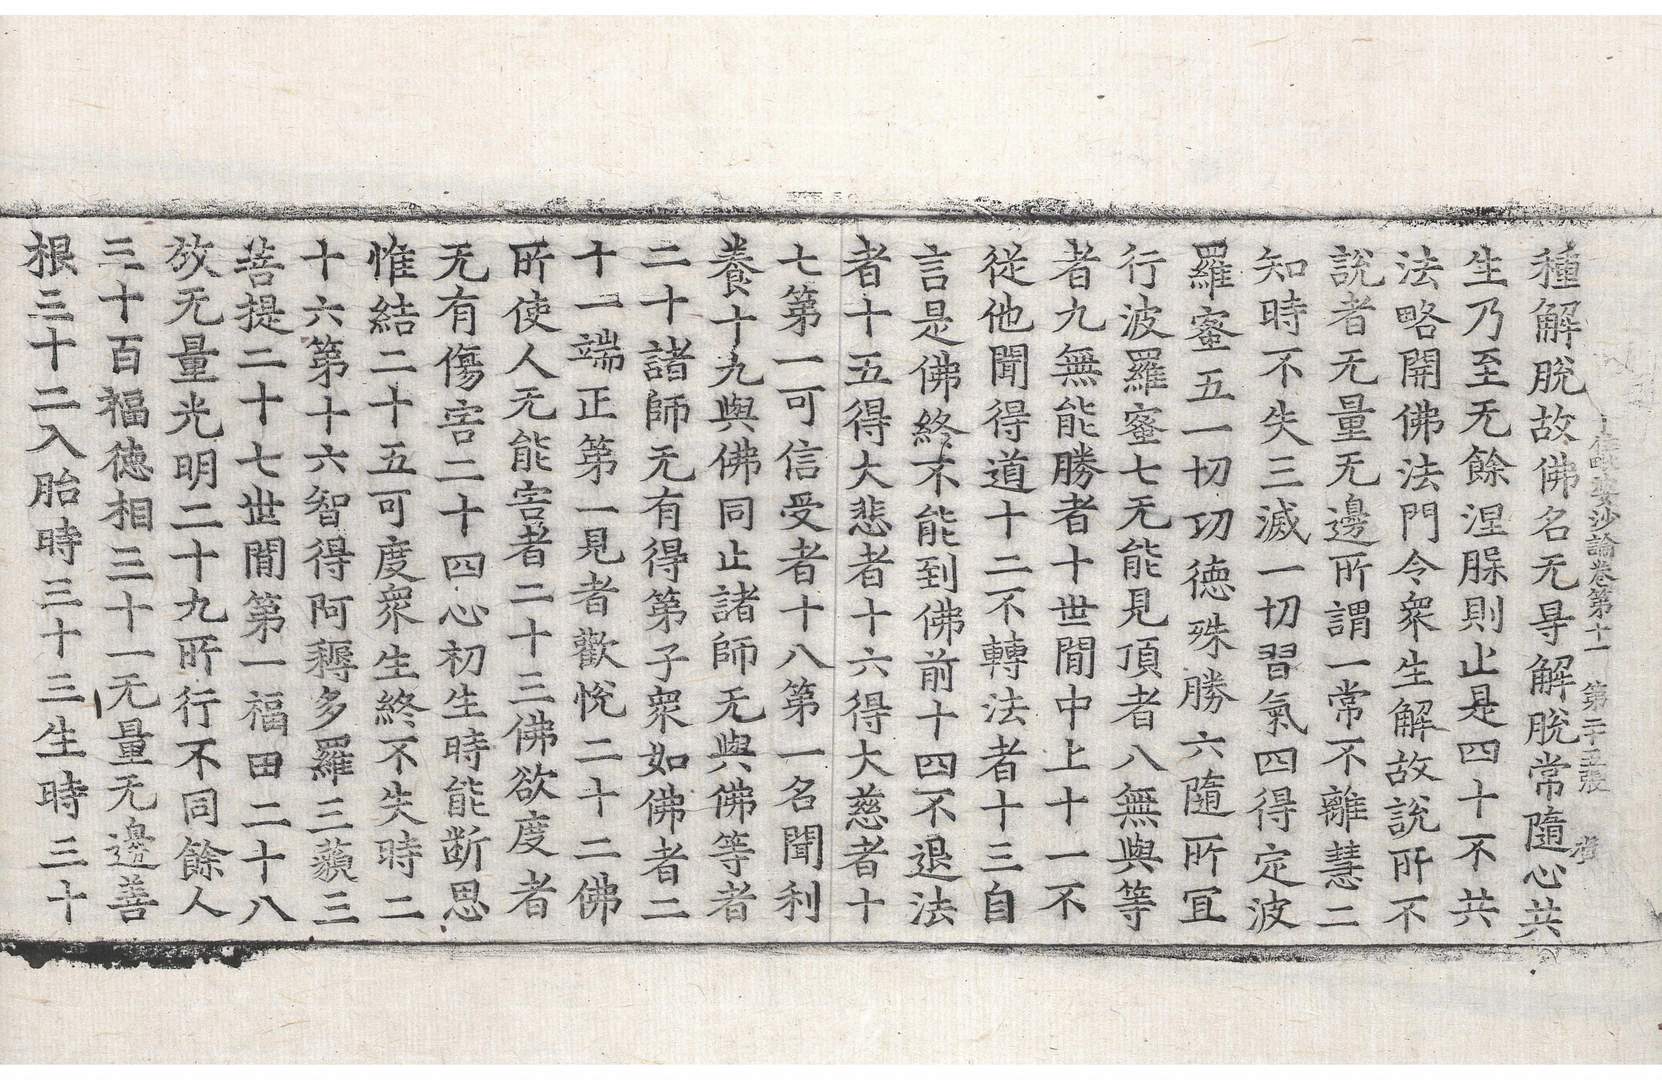 十住毗婆沙論卷第十一 第二十五張
種解脫故佛名无㝵解脫常隨心共
生乃至无餘涅槃則止是四十不共
法略開佛法門令衆生解故說所不
說者无量无邊所謂一常不離慧二
知時不失三滅一切習氣四得定波
羅蜜五一切功德殊勝六隨所宜
行波羅蜜七无能見頂者八無與等
者九無能勝者十世閒中上十一不
從他聞得道十二不轉法者十三自
言是佛終不能到佛前十四不退法
者十五得大悲者十六得大慈者十
七第一可信受者十八第一名聞利
養十九與佛同止諸師无與佛等者
二十諸師无有得第子衆如佛者二
十一端正第一見者歡悅二十二佛
所使人无能害者二十三佛欲度者
无有傷害二十四心初生時能断思
惟結二十五可度衆生終不失時二
十六第十六智得阿耨多羅三藐三
菩提二十七世閒第一福田二十八
放无量光明二十九所行不同餘人
三十百福德相三十一无量无邊善
根三十二入胎時三十三生時三十